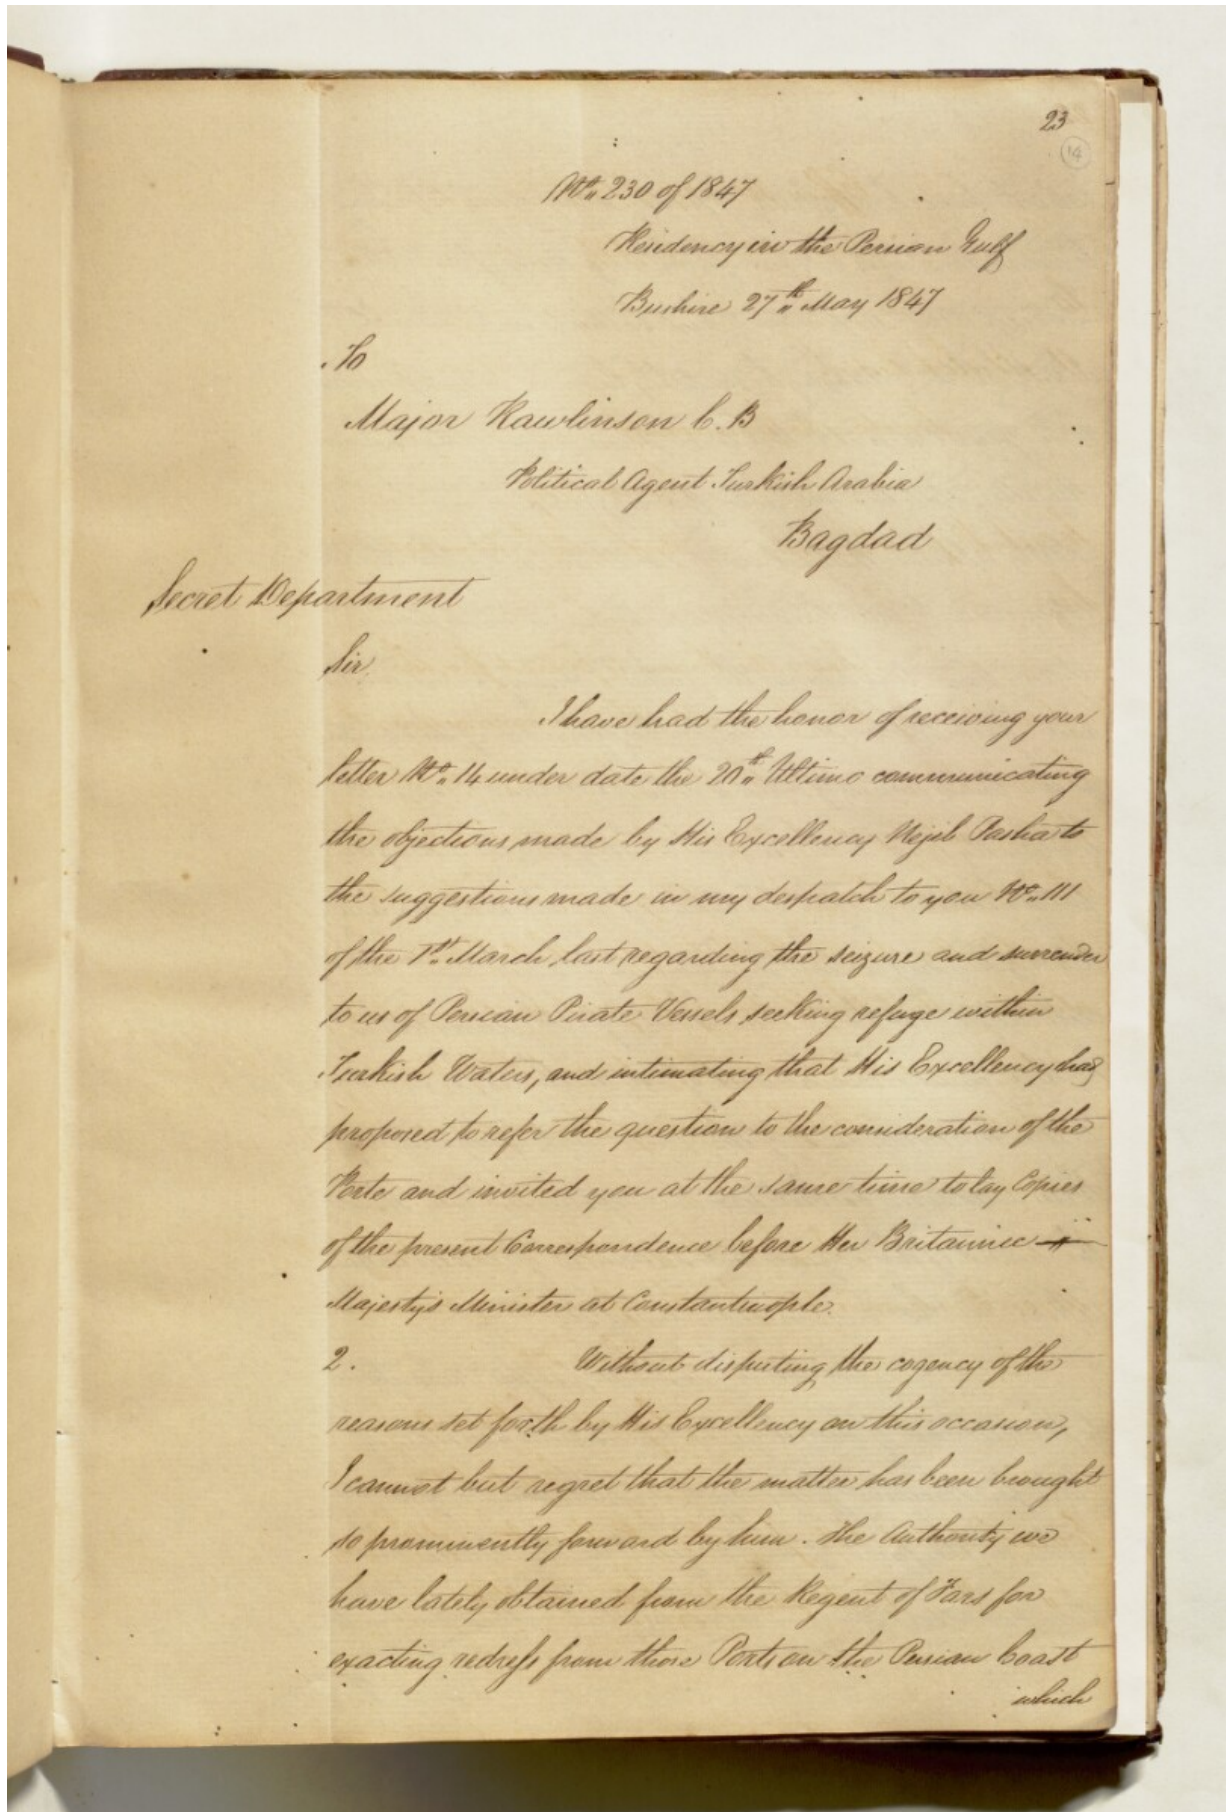 23
14
No. 230 of 1847
Residency in the Persian Gulf
Bushire 27th May 1847
To
Major Rawlinson C. B
Political Agent Turkish Arabia
Bagdad
Secret Department
Sir
I have had the honor of receiving your
letter No. 14 under date the 20th Ultimo communicating
the objections made by His Excellency Nejib Pasha to
the suggestions made in my despatch to you No. 111
of the 1st March last regarding the seizure and surrender
to us of Persian Pirate Vessels seeking refuge within
Turkish Waters, and intimating that His Excellency had
proposed to refer the question to the consideration of the
Porte and invited you at the same time to lay Copies
of the present Correspondence before Her Britannic
Majesty's Minister at Constantinople.
2. Without disputing the cogency of the
reasons set forth by His Excellency on this occasion,
I cannot but regret that the matter has been brought
so prominently forward by him. The Authority we
have lately obtained from the Regent of Fars for
exacting redress from those Ports on the Persian Coast
which